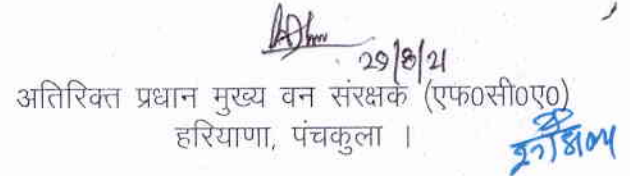 29/8/21
अतिरिक्त प्रधान मुख्य वन संरक्षक (एफ0सी0ए0)
हरियाणा, पंचकुला ।